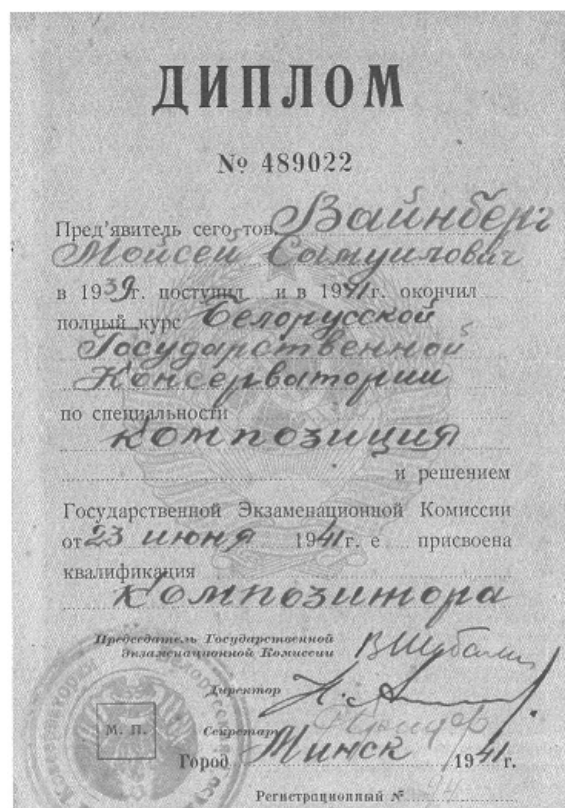 ДИПЛОМ
№ 489022
Пред'явитель сего тов. Вайнберг
Мойсей Самуилович
в 1939г. поступил и в 1941г. окончил
полный курс Белорусской
Государственной
Консерватории
по специальности
композиция
и решением
Государственной Экзаменационной Комиссии
от 23 июня 1941г. е присвоена
квалификация
композитора
Председатель Государственной
Экзаменационной Комиссии
Директор
М. П.
Секретарь
Город Минск 1941г.
Регистрационный №